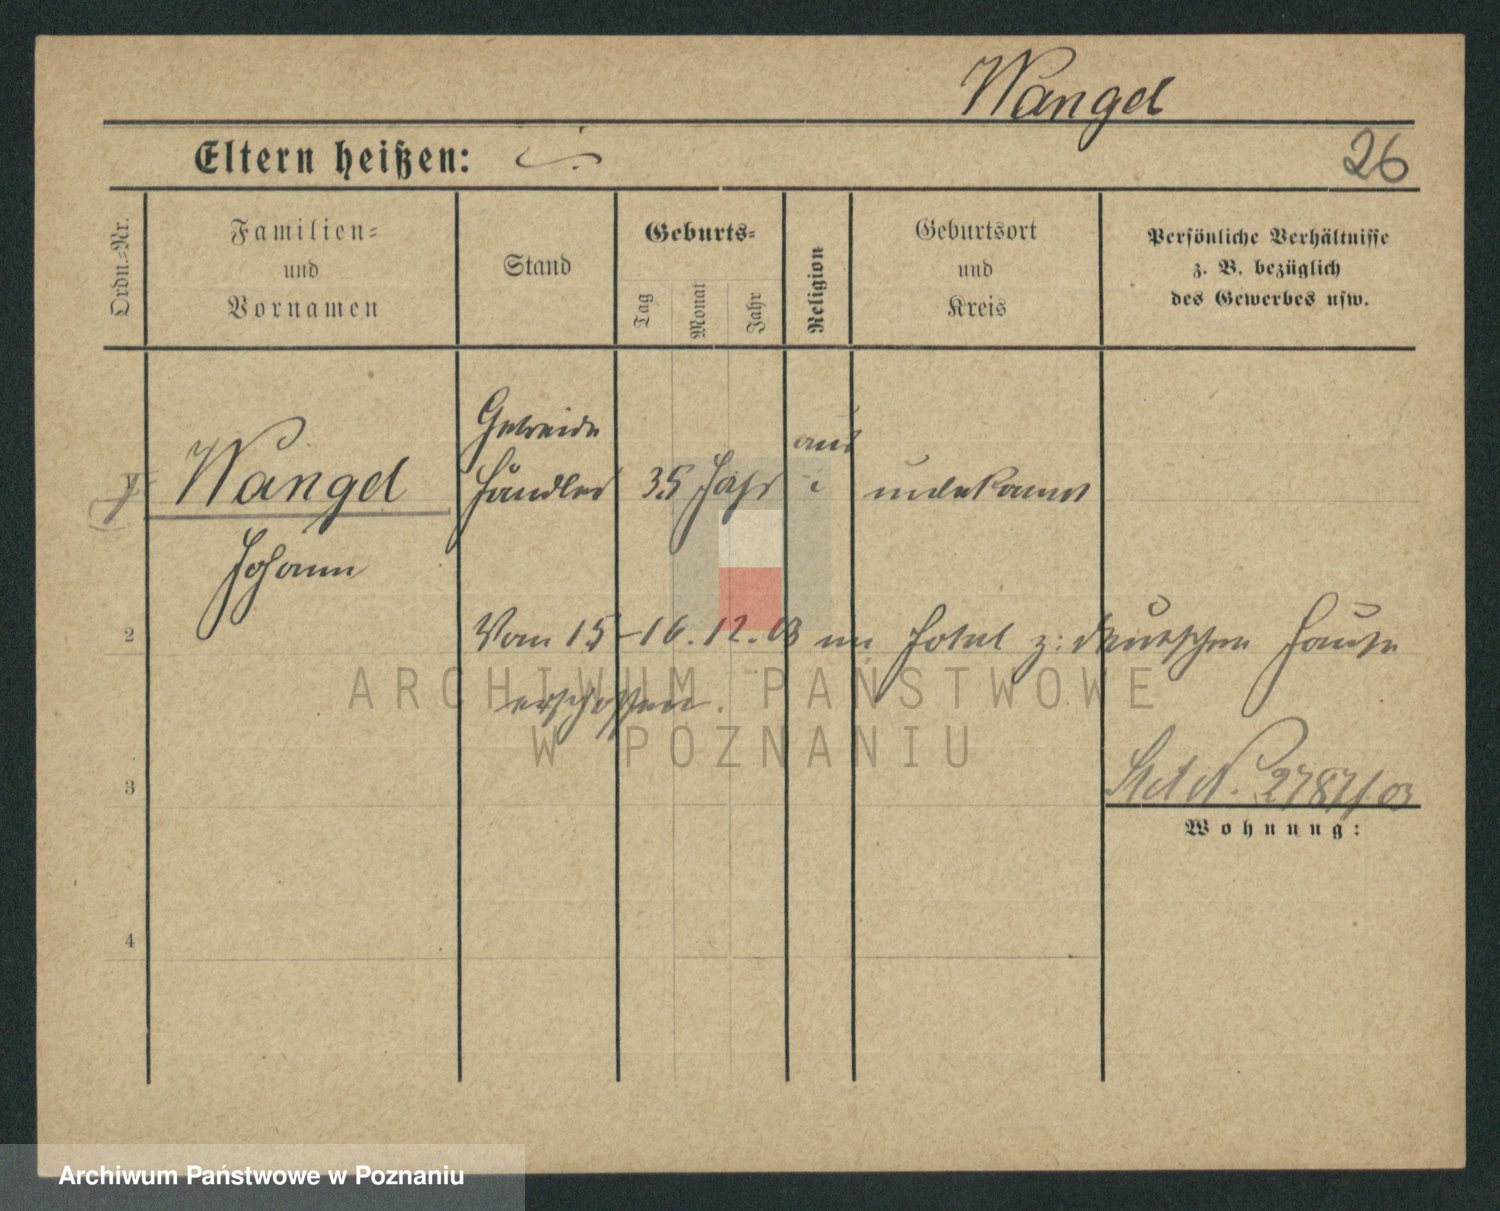 Wangel
Eltern heißen:
26
Ordn.-Nr.
Familien-
und
Vornamen
Stand
Geburts-
Tag
Monat
Jahr
Religion
Geburtsort
und
Kreis
Persönliche Verhältnisse
z. B. bezüglich
des Gewerbes usw.
Getreide
Wangel Händler 35 Jahr unbekannt
Johann
2
Vom 15-16.12.03 im Hotel z: deutschen Hause
erschossen.
ARCHIWUM PAŃSTWOWE
W POZNANIU
3
2787/03
Wohnung:
4
Archiwum Państwowe w Poznaniu